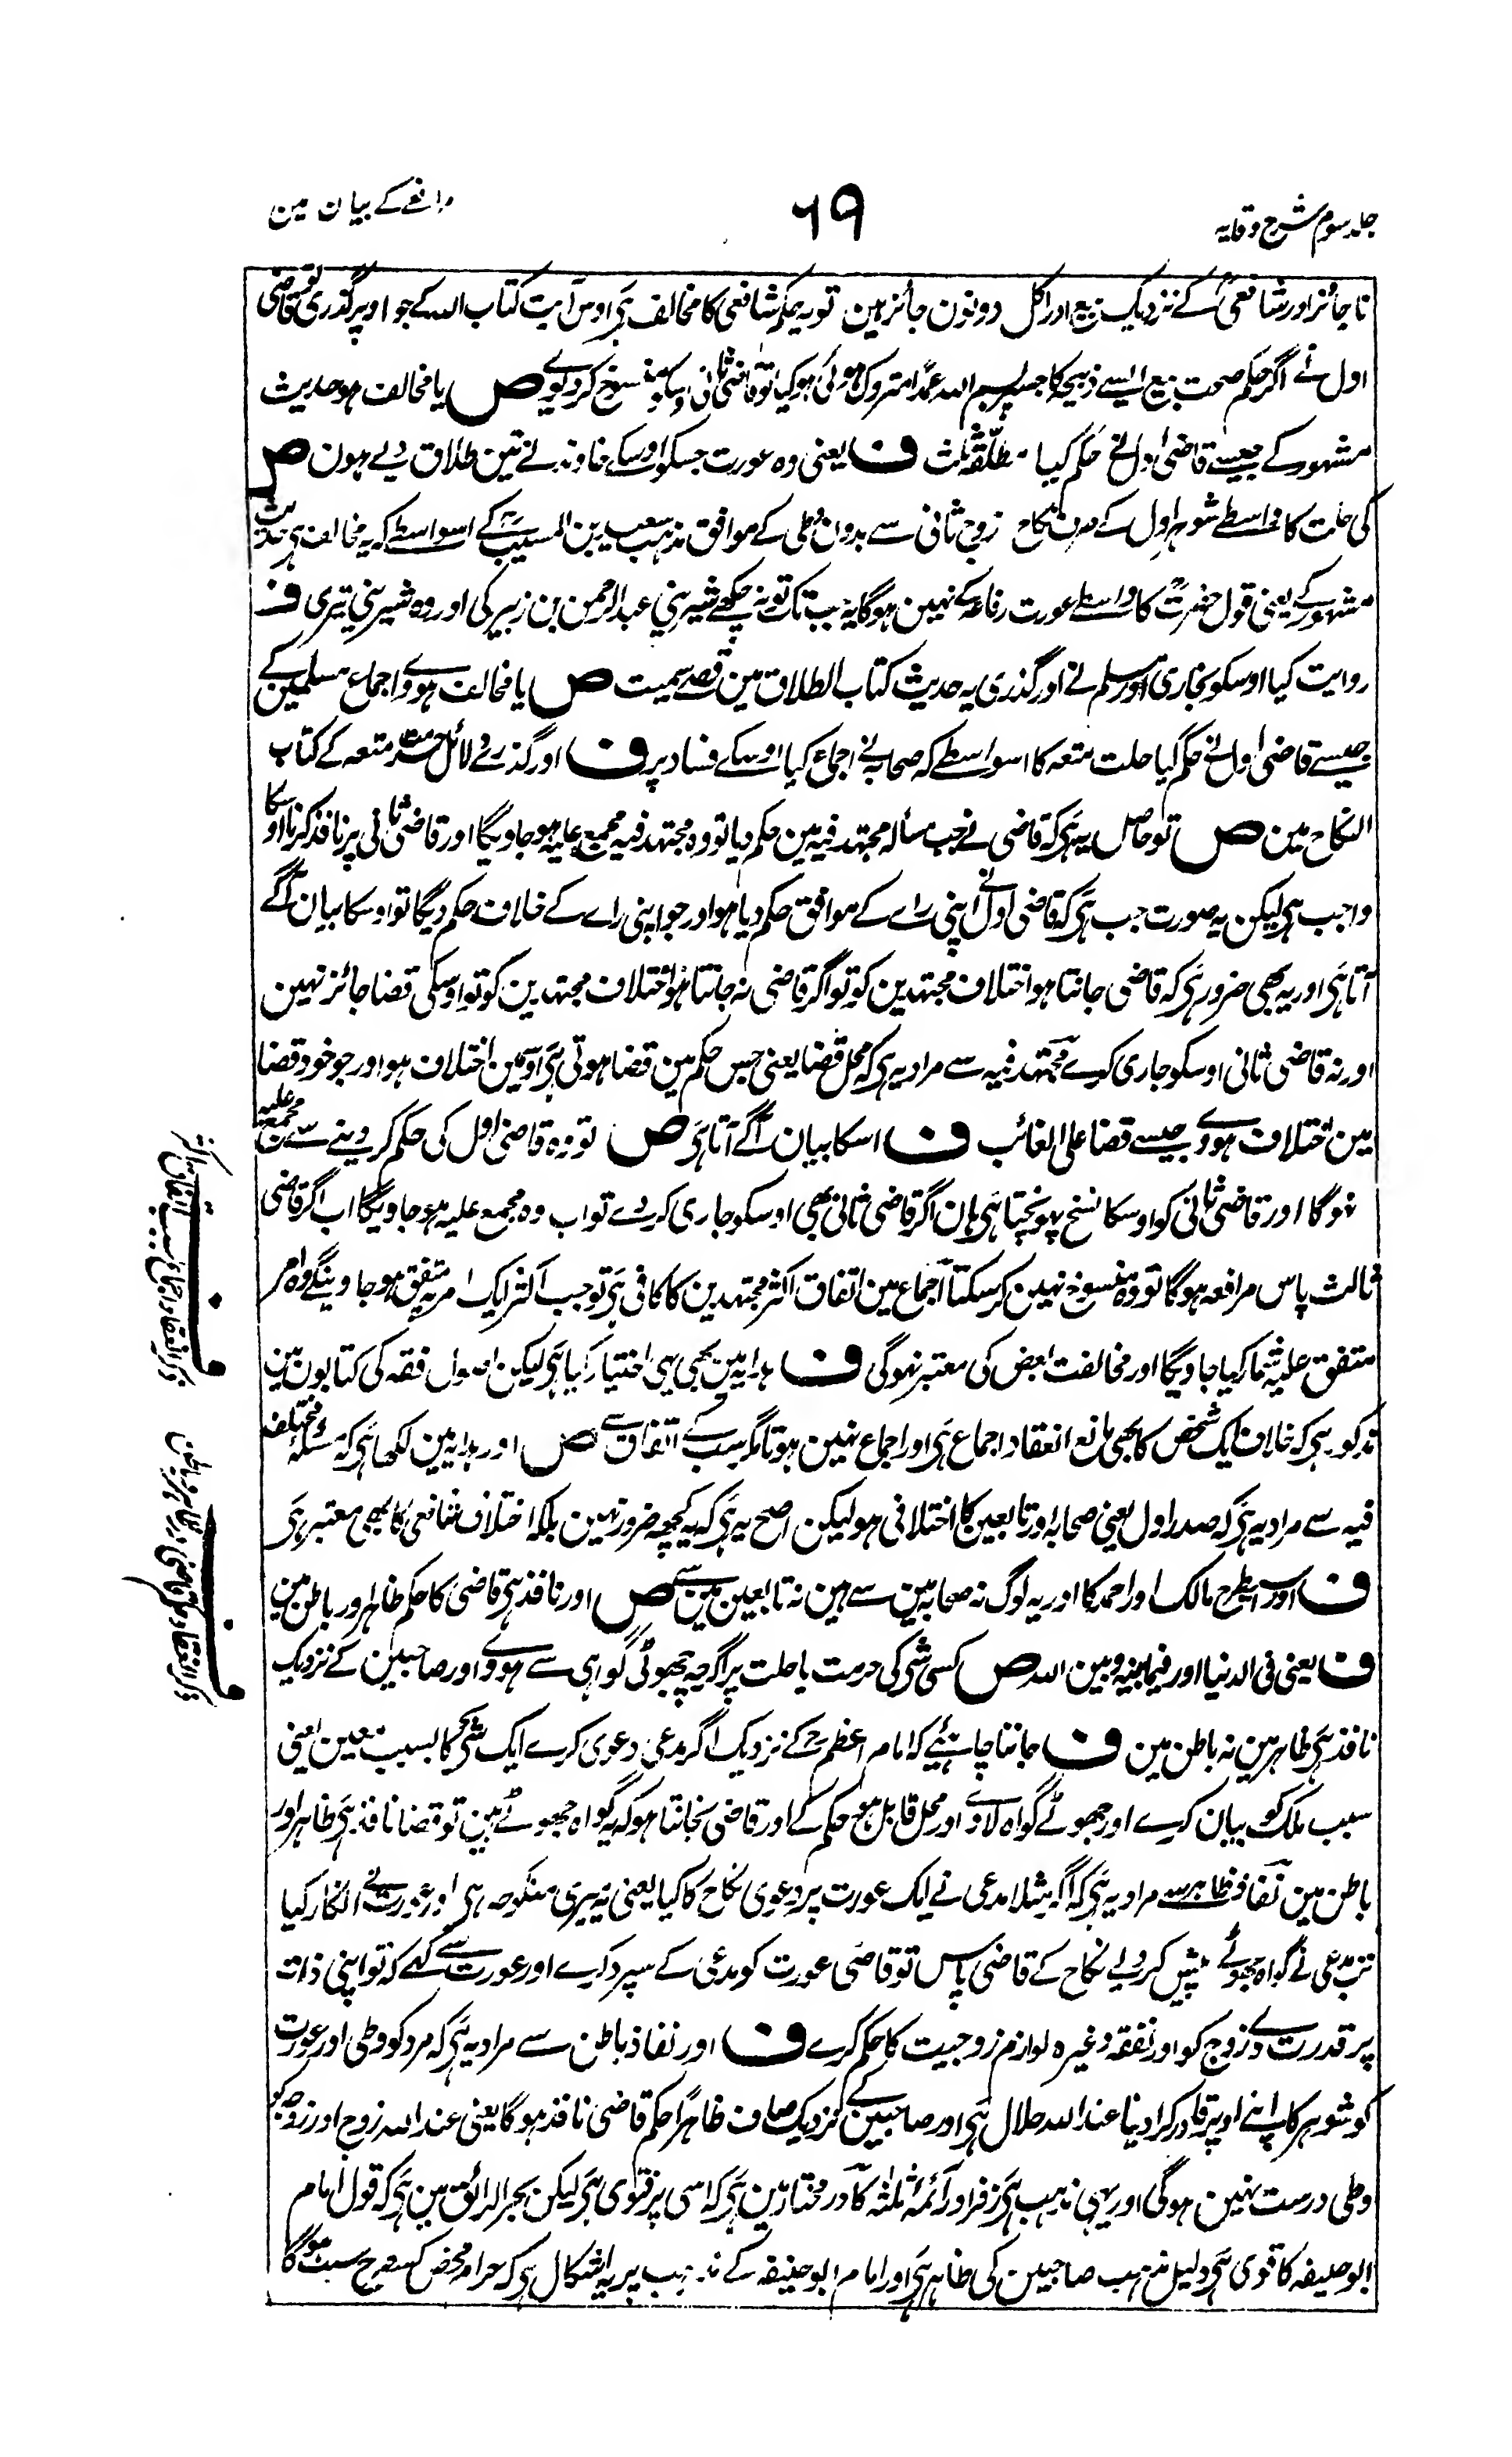 جلد سوم شرح وقایہ
۶۹
مرافعے کے بیان مین
ناجائز اور شافعیؒ کے نزدیک بیع اور اکل دونون جائز ہین تو یہ حکم شافعی کا مخالف ہی اوس آیت کتاب اللہ کے جو اوپر گذری تو قاضی
اول نے اگر حکم صحت بیع ایسے ذبیحہ کا جسپر بسم اللہ عمداً متروک ہوئی ہو کیا تو قاضی ثانی اوسکو منسوخ کر دیوے ص یا مخالف ہو حدیث
مشہور کے جیسے قاضی اول نے حکم کیا مطلقہ ثلث ف یعنی وہ عورت جسکو اوسکے خاوند نے تین طلاق دیے ہون ص
کی حلت کا واسطے شوہر اول کے صرف نکاح زوج ثانی سے بدون وطی کے موافق مذہب سعید بن المسیبؒ کے اسواسطے کہ یہ مخالف ہی حدیث
مشہور کے یعنی قول حضرتؐ کا واسطے عورت رفاعہ کے نہین ہوگا یہ جب تک تو نہ چکھے شیرینی عبدالرحمن بن زبیر کی اور وہ شیرینی تیری ف
روایت کیا اوسکو بخاری اور مسلم نے اور گذری یہ حدیث کتاب الطلاق مین قصے سمیت ص یا مخالف ہووے اجماع مسلمین کے
جیسے قاضی اول نے حکم کیا حلت متعہ کا اسواسطے کہ صحابہ نے اجماع کیا اوسکے فساد پر ف اور گذرے دلائل حرمت متعہ کے کتاب
النکاح مین ص تو حاصل یہ ہی کہ قاضی نے جب مسألہ مجتہد فیہ مین حکم دیا تو وہ مجتہد فیہ مجمع علیہ ہو جاویگا اور قاضی ثانی پر نافذ کرنا اوسکا
واجب ہی لیکن یہ صورت جب ہی کہ قاضی اول نے اپنی راے کے موافق حکم دیا ہو اور جو اپنی راے کے خلاف حکم دیگا تو اوسکا بیان آگے
آتا ہی اور یہ بھی ضرور ہی کہ قاضی جانتا ہو اختلاف مجتہدین کو تو اگر قاضی نہ جانتا ہو اختلاف مجتہدین کو تو اوسکی قضا جائز نہین
اور نہ قاضی ثانی اوسکو جاری کرے مجتہد فیہ سے مراد یہ ہی کہ محل قضا یعنی جس حکم مین قضا ہوتی ہی اوسمین اختلاف ہو اور جو خود قضا
مین اختلاف ہووے جیسے قضا علی الغائب ف اسکا بیان آگے آتا ہی ص تو وہ قاضی اول کی حکم کر دینے سے مجمع علیہ
نہوگا اور قاضی ثانی کو اوسکا نسخ پہونچتا ہی ہان اگر قاضی ثانی بھی اوسکو جاری کر دے تو اب وہ مجمع علیہ ہو جاویگا اب اگر قاضی
ثالث پاس مرافعہ ہوگا تو وہ منسوخ نہین کر سکتا اجماع مین اتفاق اکثر مجتہدین کا کافی ہی تو جب اکثر ایک امر پر متفق ہو جاوینگے وہ امر
متفق علیہ شمار کیا جاویگا اور مخالفت بعض کی معتبر نہوگی ف ہدایہ مین بھی یہی اختیار کیا ہی لیکن اصول فقہ کی کتابون مین
مذکور ہی کہ خلاف ایک شخص کا بھی مانع انعقاد اجماع ہی اور اجماع نہین ہوتا مگر سب کے اتفاق سے ص اور ہدایہ مین لکھا ہی کہ مسئلہ مختلف
فیہ سے مراد یہ ہی کہ صدر اول یعنی صحابہ اور تابعین کا اختلافی ہو لیکن اصح یہ ہی کہ یہ کچھ ضرور نہین بلکہ اختلاف شافعی کا بھی معتبر ہی
ف اور اسیطرح مالک اور احمد کا اور یہ لوگ نہ صحابہ مین سے ہین نہ تابعین مین سے ص اور نافذ ہی قاضی کا حکم ظاہر اور باطن مین
ف یعنی فی الدنیا اور فیما بینہ و بین اللہ ص کسی شی کی حرمت یا حلت پر اگرچہ جھوٹی گواہی سے ہووے اور صاحبین کے نزدیک
نافذ ہی ظاہر مین نہ باطن مین ف جاننا چاہئیے کہ امام اعظمؒ کے نزدیک اگر مدعی دعوی کرے ایک شی کا بسبب معین یعنی
سبب ملک کو بیان کرے اور جھوٹے گواہ لاوے اور محل قابل ہو حکم کے اور قاضی نجانتا ہو کہ یہ گواہ جھوٹے ہین تو قضا نافذ ہی ظاہر اور
باطن مین نفاذ ظاہر سے مراد یہ ہی کہ اگر مثلا مدعی نے ایک عورت پر دعوی نکاح کا کیا یعنی یہ میری منکوحہ ہی اور عورت نے انکار کیا
تب مدعی نے گواہ جھوٹے پیش کر دیے نکاح کے قاضی پاس تو قاضی عورت کو مدعی کے سپرد کرے اور عورت سے کہے کہ تو اپنی ذات
پر قدرت دے زوج کو اور نفقہ وغیرہ لوازم زوجیت کا حکم کرے ف اور نفاذ باطن سے مراد یہ ہی کہ مرد کو وطی اور عورت
کو شوہر کا اپنے اوپر قادر کرا دینا عند اللہ حلال ہی اور صاحبین کے نزدیک صاف ظاہراً حکم قاضی نافذ ہوگا یعنی عند اللہ زوج اور زوجہ کو
وطی درست نہین ہوگی اور یہی مذہب ہی زفر اور ائمہ ثلثہ کا در مختار مین ہی کہ اسی پر فتوی ہی لیکن بحر الرائق مین ہی کہ قول امام
ابو حنیفہ کا قوی ہی دلیل مذہب صاحبین کی ظاہر ہی اور امام ابو حنیفہ کے مذہب پر یہ اشکال ہی کہ حرام محض کسطرح سبب ہوگا